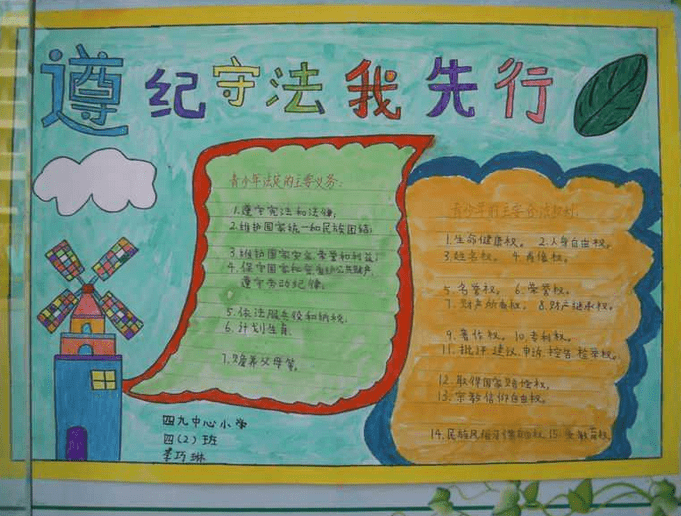 遵纪守法我先行
青少年法定的主要义务：
1.遵守宪法和法律；
2.维护国家统一和民族团结；
3.维护国家安全、荣誉和利益；
4.保守国家和爱护公共财产，
遵守劳动纪律；
5.依法服兵役和纳税
6.计划生育
7.赡养父母等。
青少年的主要合法权利：
1.生命健康权。 2.人身自由权。
3.姓名权。 4.肖像权。
5.名誉权。 6.荣誉权。
7.财产所有权。 8.财产继承权。
9.著作权。 10.专利权。
11.批评、建议、申诉、控告、检举权。
12.取得国家赔偿权。
13.宗教信仰自由权。
14.民族风俗习惯自由权。15.受教育权。
四九中心小学
四（2）班
李巧琳